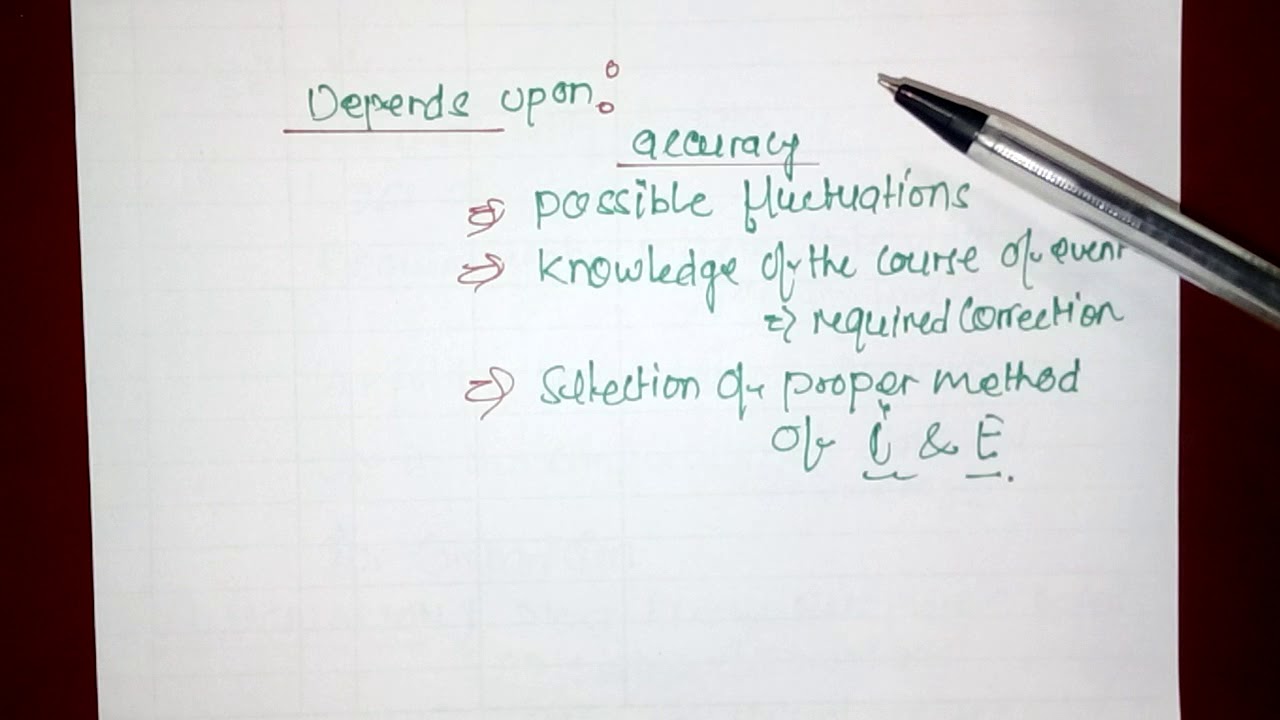 Depends upon:
accuracy
⇒ possible fluctuations
⇒ knowledge of the course of event
⇒ required correction
⇒ Selection of proper method
of i & E.